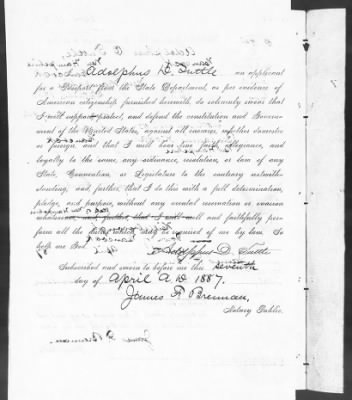 I Adolphus D. Tuttle an applicant
for a Passport from the State Department, as per evidence of
American citizenship furnished herewith, do solemnly swear that
I will support protect, and defend the constitution and Govern-
ment of the United States, against all enemies, whether domestic
or foreign, and that I will bear true faith, allegiance, and
loyalty to the same, any ordinance, resolution, or law of any
State, Convention, or Legislature to the contrary notwith-
standing, and, further, that I do this with a full determination,
pledge, and purpose, without any mental reservation or evasion
whatsoever and further, that I will well and faithfully per-
form all the duties which may be required of me by law. So
help me God.
Adolphus D. Tuttle
Subscribed and sworn to before me this seventh
day of April A.D. 1887.
James F. Brennan,
Notary Public.